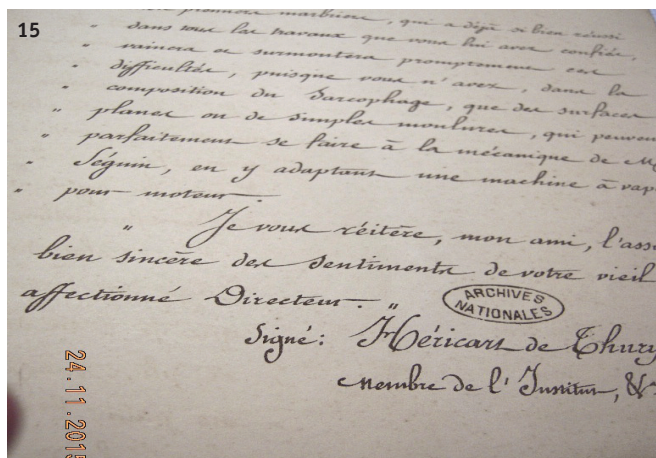 15
premiers marbriers, qui a déjà si bien réussi
" dans tous les travaux que vous lui avez confiés,
" vaincra et surmontera promptement ces
" difficultés, puisque vous n'avez, dans la
" composition du Sarcophage, que des surfaces
" planes ou de simples moulures, qui peuvent
" parfaitement se faire à la mécanique de
" Séguin, en y adaptant une machine à vap
" pour moteur.
" Je vous réitère, mon ami, l'ass
bien sincère des sentiments de votre vieil
affectionné Directeur. "
ARCHIVES
NATIONALES
Signé: Héricart de Thury
Membre de l'Institut, &
24.11.2015